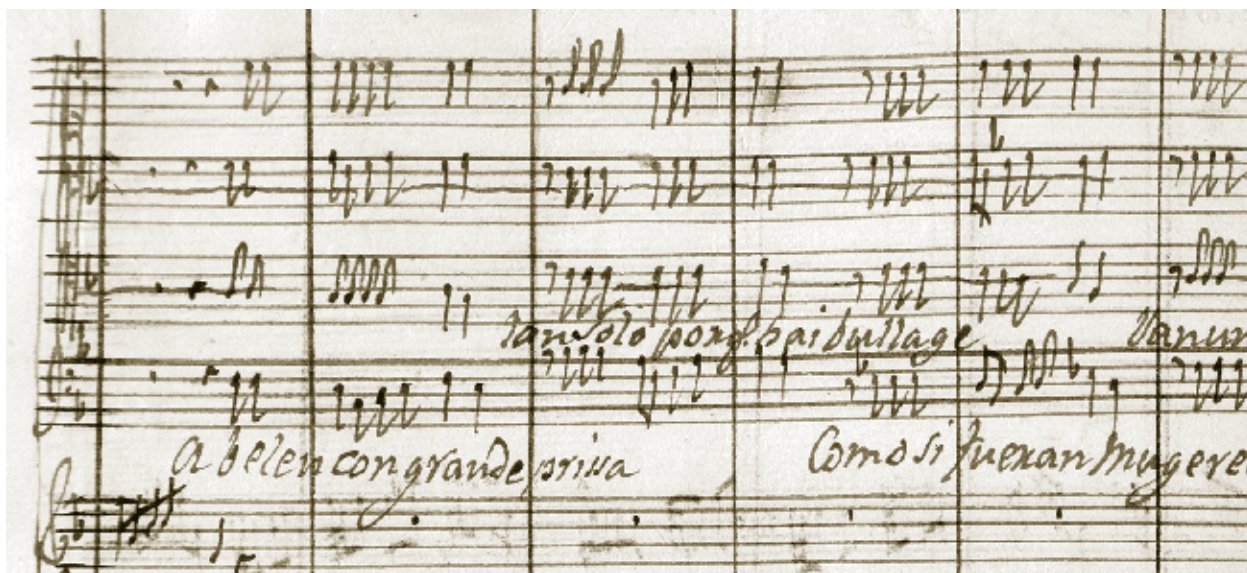 tan solo porq. hai bullage Van un
A belen con grande prissa Como si fueran mugere